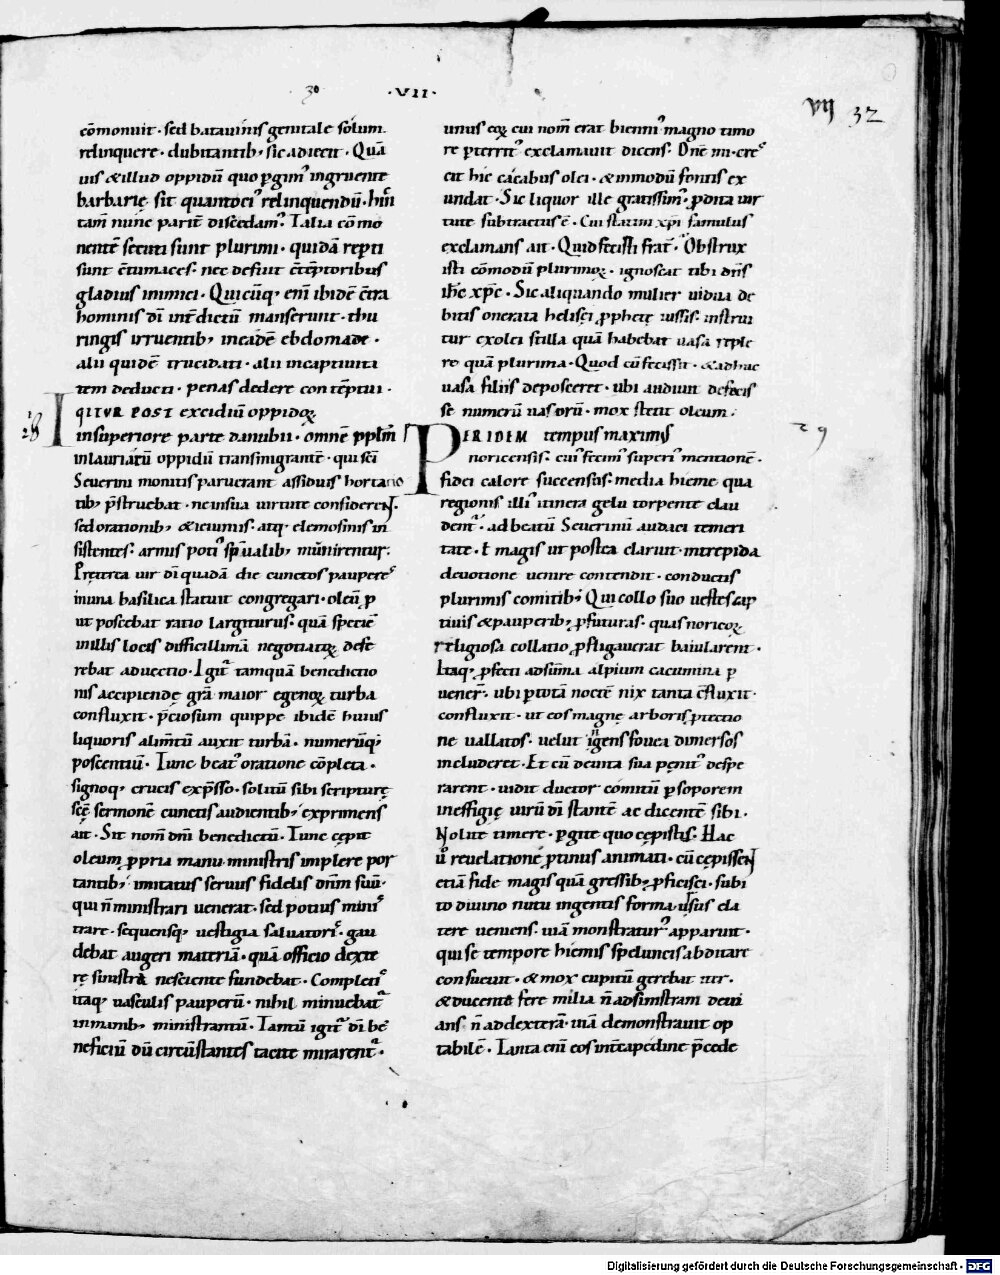 30 · VII · VII 32
cōmonuit · sed batauinis genitale solum
relinquere · dubitantib; sic adiecit · Quā
uis & illud oppidū quo pgim' ingruente
barbarie sit quantoci' relinquendū · hinc
tam̄ nunc parit̄ discedam' · Talia cōmo
nentē secuti sunt plurimi · quidā rep̄ti
sunt c̄tumaces · nec defuit c̄tēptoribus
gladius inimici · Quicūq; enī ibidē c̄tra
hominis dī int̄dictū manserunt · thu
ringis irruentib; in eadē ebdomade ·
alii quidē trucidati · alii in captiuita
tem deducti · penas dedere contēptui ·
28 IGITUR POST excidiū oppidoꝝ
in superiore parte danubii · omnē pplm̄
in lauriacū oppidū transmigrantē · qui sc̄i
Seuerini monitis paruerant assiduis hortatio
tib; p̄struebat · ne in sua uirtute considerent ·
sed orationib; & ieiuniis · atq; elemosinis in
sistentes · armis poti' sp̄ualib; munirentur ·
Pręterea uir dī quadā die cunctos paupere'
in una basilica statuit congregari · oleū p
ut poscebat ratio largiturus · quā speciē
in illis locis difficillimā negotiatoꝝ defe
rebat aduectio · Igit' tamquā benedictio
nis accipiendę grā maior egenoꝝ turba
confluxit · p̄ciosum quippe ibidē huius
liquoris alim̄tū auxit turbā · numerūq;
poscentiū · Tunc beat' oratione cōpleta ·
signoq; crucis exp̄sso · solitū sibi scripturę
scę sermonē cunctis audientib; exprimens
ait · Sit nom̄ dnī benedictū · Tunc cępit
oleum ppria manu ministris implere por
tantib; imitatus seruus fidelis dnm̄ suū ·
qui n̄ ministrari uenerat · sed potius minis
trare · sequensq; uestigia saluatoris · gau
debat augeri materiā · quā officio dexte
rę sinistra nesciente fundebat · Completi'
itaq; uasculis pauperū · nihil minuebat'
in manib; ministrantū · Tantū igit' dī be
neficiū dū circūstantes tacite mirarent' ·
unus eoꝝ cui nom̄ erat bienni' magno timo
re pterrit' exclamauit dicens · Dn̄e mi · cre'
cit hic cacabus olei · & in modū fontis ex
undat · Sic liquor ille gratissim' · pdita uir
tute subtractus ē · Cui statim xp̄i famulus
exclamans ait · Quid fecisti frat̄ · Obstrux
isti cōmodū plurimoꝝ · ignoscat tibi dn̄s
ih̄c xp̄c · Sic aliquando mulier uidua de
bitis onerata helisęi pphetę iussis · instrui
tur ex olei stilla quā habebat uasa reple
re quā plurima · Quod cū fecissit · & adhuc
uasa filiis deposceret · ubi audiuit defecis
se numerū uasorū · mox stetit oleum ·
29 PER IDEM tempus maximus
noricensis · cui' fecim' superi' mentionē ·
fidei calore succensus · media hieme qua
regionis illi' itinera gelu torpente clau
dent' · ad beatū Seuerinū audaci temeri
tate · t̄ magis ut postea claruit · intrepida
deuotione uenire contendit · conductis
plurimis comitib; Qui collo suo uestes cap
tiuis & pauperib; pfuturas · quas noricoꝝ
religiosa collatio pfligauerat baiularent ·
Itaq; pfecti ad summa alpium cacumina p
uener̄ · ubi p totā noctē nix tanta cōfluxit ·
confluxit · ut eos magnę arboris ptectio
ne uallatos · uelut ingens fouea dimersos
includeret · Et cū de uita sua penit' despe
rarent · uidit ductor comitū p soporem
in effigię uirū dī stantē ac dicentē sibi ·
Nolite timere · pgite quo cępistis · Hac
ū reuelatione protinus animati · cū cępissent
etiā fide magis quā gressib; pficisci · subi
to diuino nutu ingentis forma ursus ela
tere ueniens · uiā monstratur' apparuit ·
qui se tempore hiemis speluncis abditare
consueuit · & mox cupitū gerebat iter ·
& ducenta fere milia n̄ ad sinistram deui
ans · n̄ ad dexterā · uiā demonstrauit op
tabilē · Tanta enī eos int̄capedine p̄cede
Digitalisierung gefördert durch die Deutsche Forschungsgemeinschaft · DFG